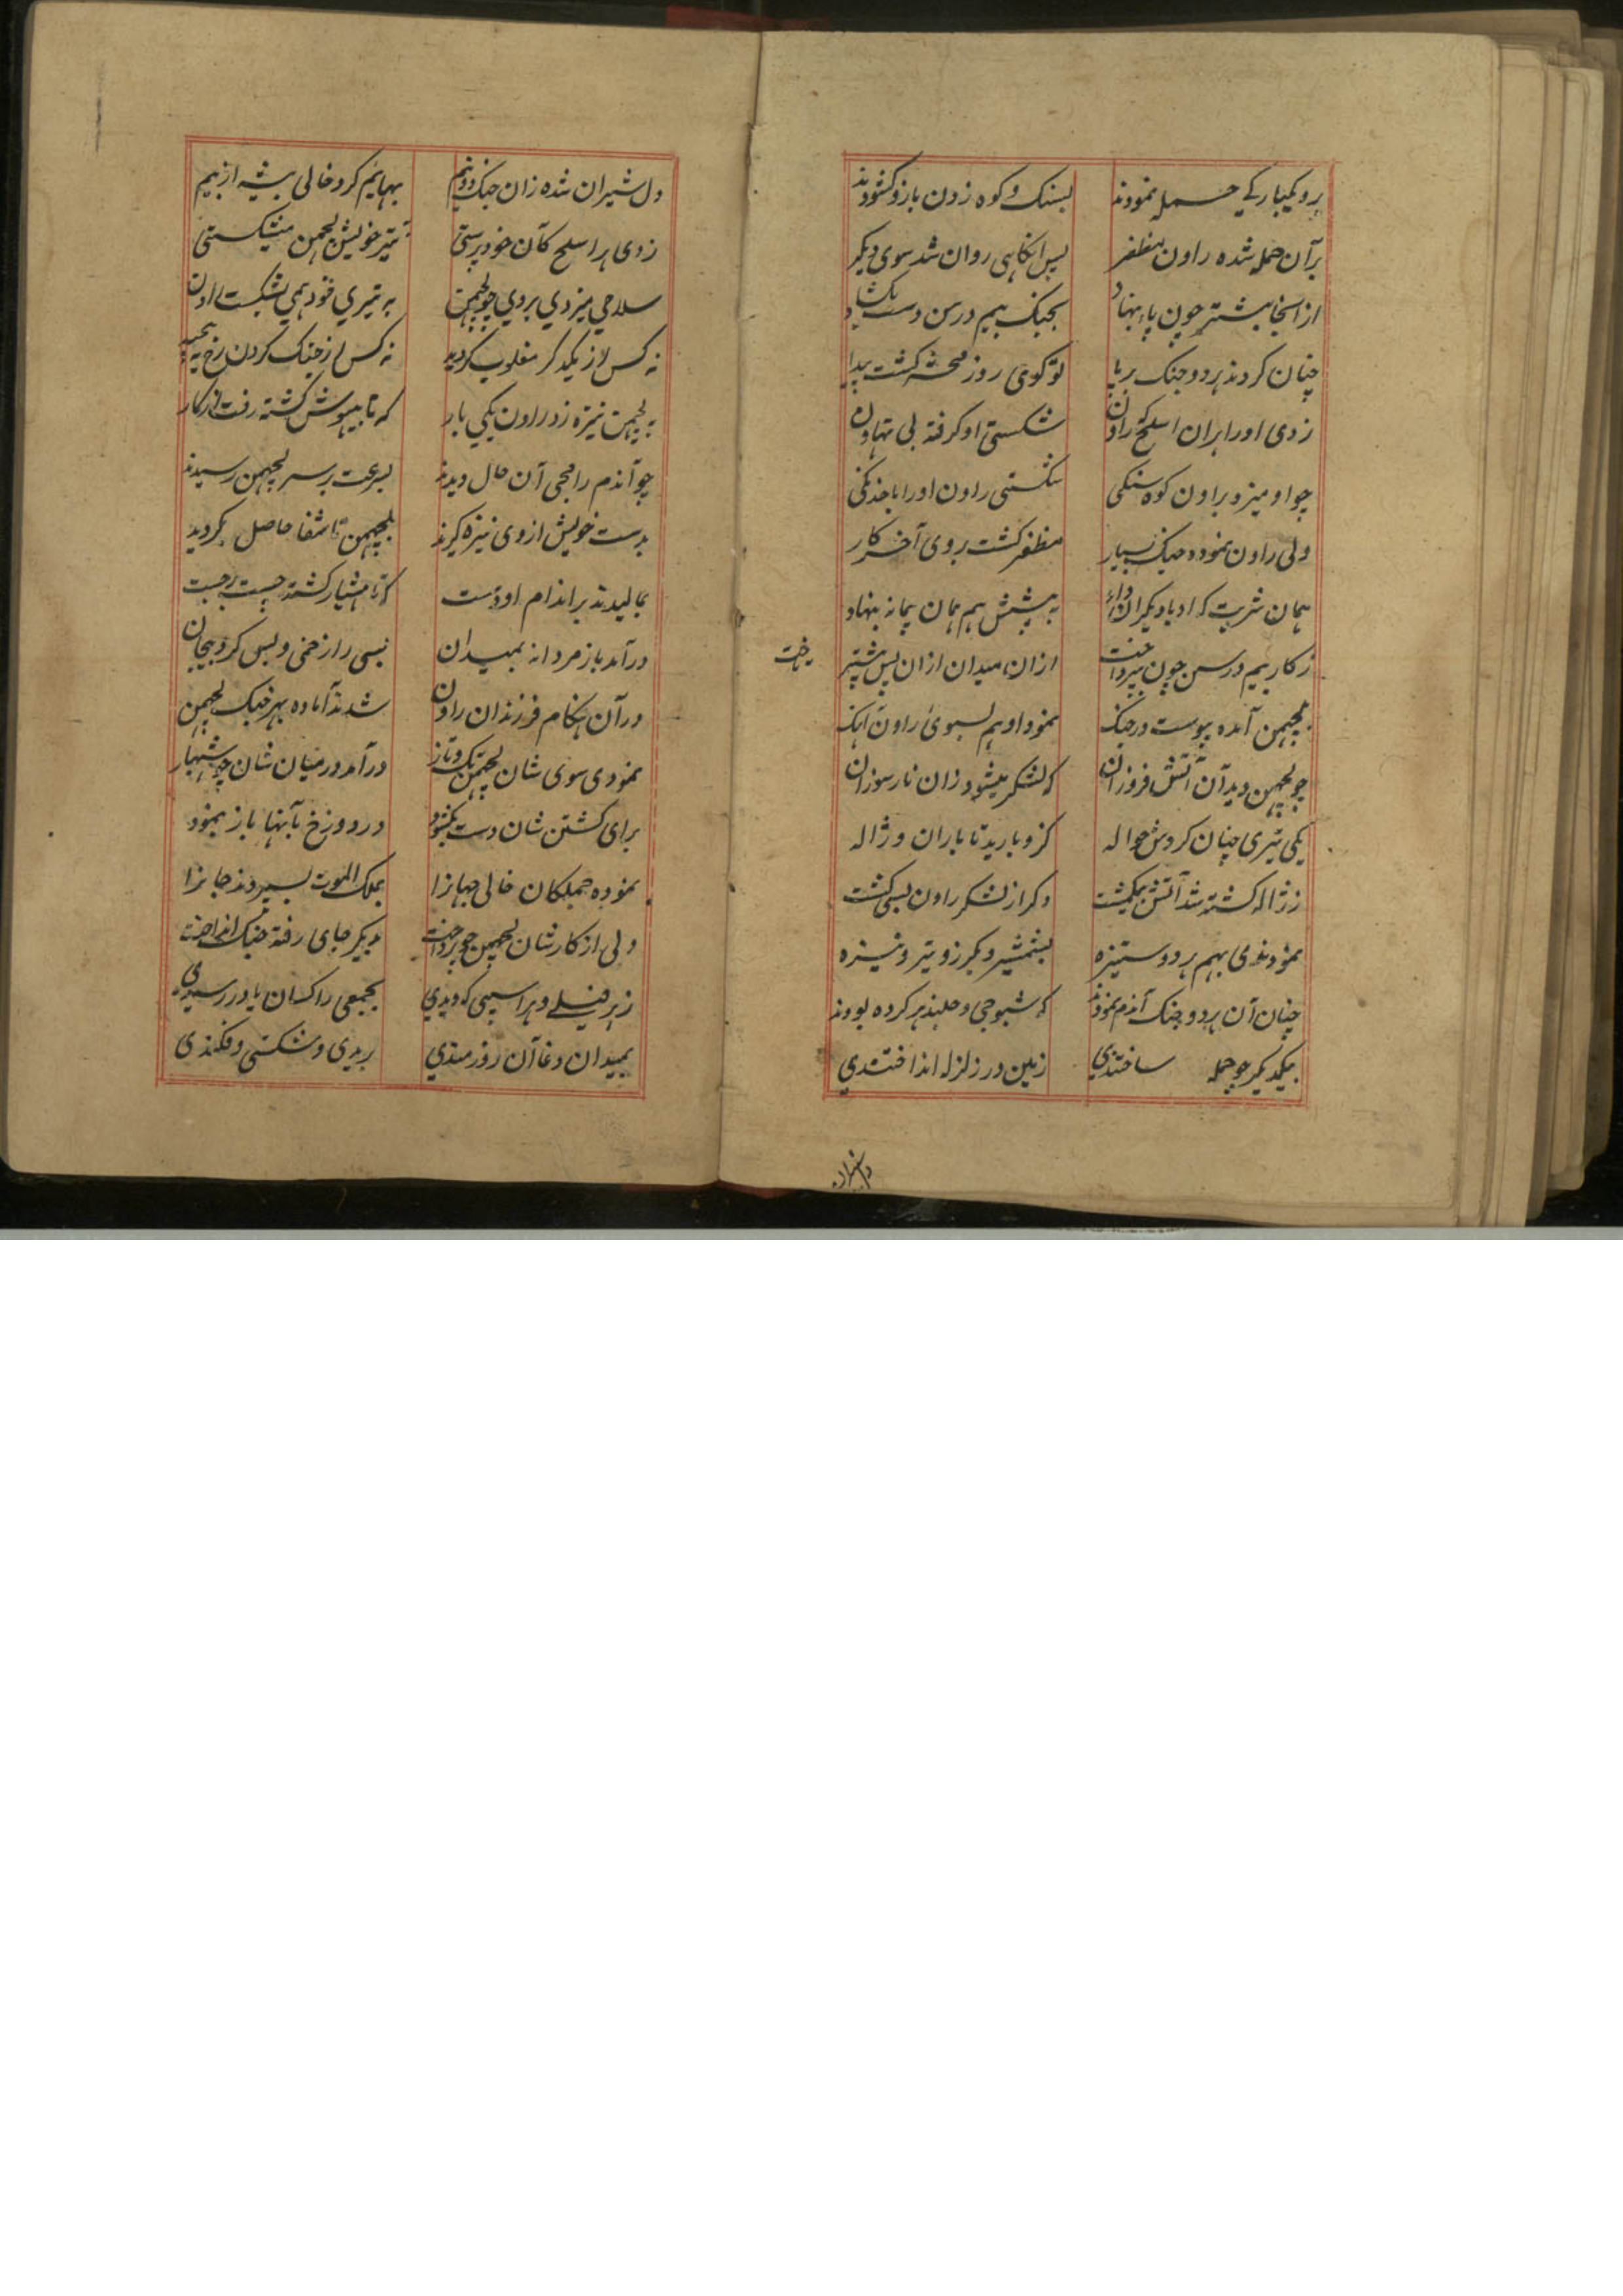 برو یکبارکی حمله نمودند بسنک و کوه زدن بازو کشودند
برآن حمله شده راون مظفر پس انکاهی روان شد سوی دیکر
از انجا پیشتر چون پاء بنهاد بجنک بیم درسن دست بکشاد
چنان کردند هر دو جنک برپا تو کوی روز محشر کشت پیدا
زدی او را بران اسلحه راون شکستی او کرفته بی تهاون
چو او میزد براون کوه سنکی شکستی راون او را
ولی راون نموده جنک بسیار مظفر کشت بروی آخر کار
همان شربت که او با دیکران داد به پیشش هم همان پیمانه بنهاد
ز کار بیم درسن چون بپرداخت ازان میدان ازان پس پیشتر تاخت
بلچهمن آمده پیوست در جنک نمود او هم بسوی راون آهنک
چو لچهمن دید آن آتش فروزان که لشکر میشود زان نار سوزان
یکی تیری چنان کردش حواله کزو بارید تا باران و ژاله
ز ژاله کشته شد آتش بیکمشت دکر از لشکر راون بسی کشت
نمودندی بهم هر دو ستیزه بشمشیر و بکرز و تیر و نیزه
چنان آن هر دو جنک آندم نمودند که شبوجی و جلندهر کرده بودند
بیکدیکر چو حمله ساختندی زمین در زلزله انداختندی
دل شیران شده زان جنک دو نیم بهایم کرد خالی بیشه از بیم
زدی هر اسلحه کآن خود پرستی بتیر خویش لچهمن میشکستی
سلاحی میزدی بروی چو لچهمن به تیری خود همی بشکست راون
نه کس از یکدکر مغلوب کردید نه کس از جنک کردن رخ به پیچید
به لچهمن نیزه زد راون یکی بار که تا بیهوش کشته رفت از کار
چو آندم رامجی آن حال دیدند بسرعت بر سر لچهمن رسیدند
بدست خویش از وی نیزه کیرند بلچهمن تا شفا حاصل بکردید
بمالیدند بر اندام او دست که تا هشیار کشته چست برجست
درآمد باز مردانه بمیدان بسی را زخمی و بس کرد بیجان
درآن هنکام فرزندان راون شدند آماده بهر جنک لچهمن
نمودی سوی شان لچهمن تک و تاز درآمد در میان شان چو شهباز
برای کشتن شان دست بکشود در دوزخ بآنها باز بنمود
نموده جملکان خالی جهانرا بملک الموت بسپردند جانرا
ولی از کارشان لچهمن چو پرداخت بدیکر جای رفته جنک انداخت
زهر فیلی و هر اسپی که دیدی بجمعی راکسان یا در رسیدی
بمیدان دغا آن روزمندی بریدی و شکستی و فکندی